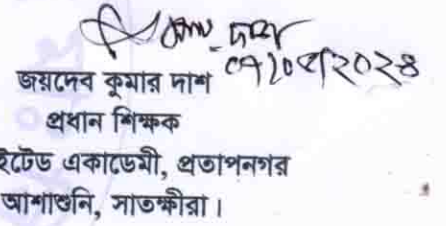 জয়দেব কুমার দাশ
প্রধান শিক্ষক
ইটেড একাডেমী, প্রতাপনগর
আশাশুনি, সাতক্ষীরা।